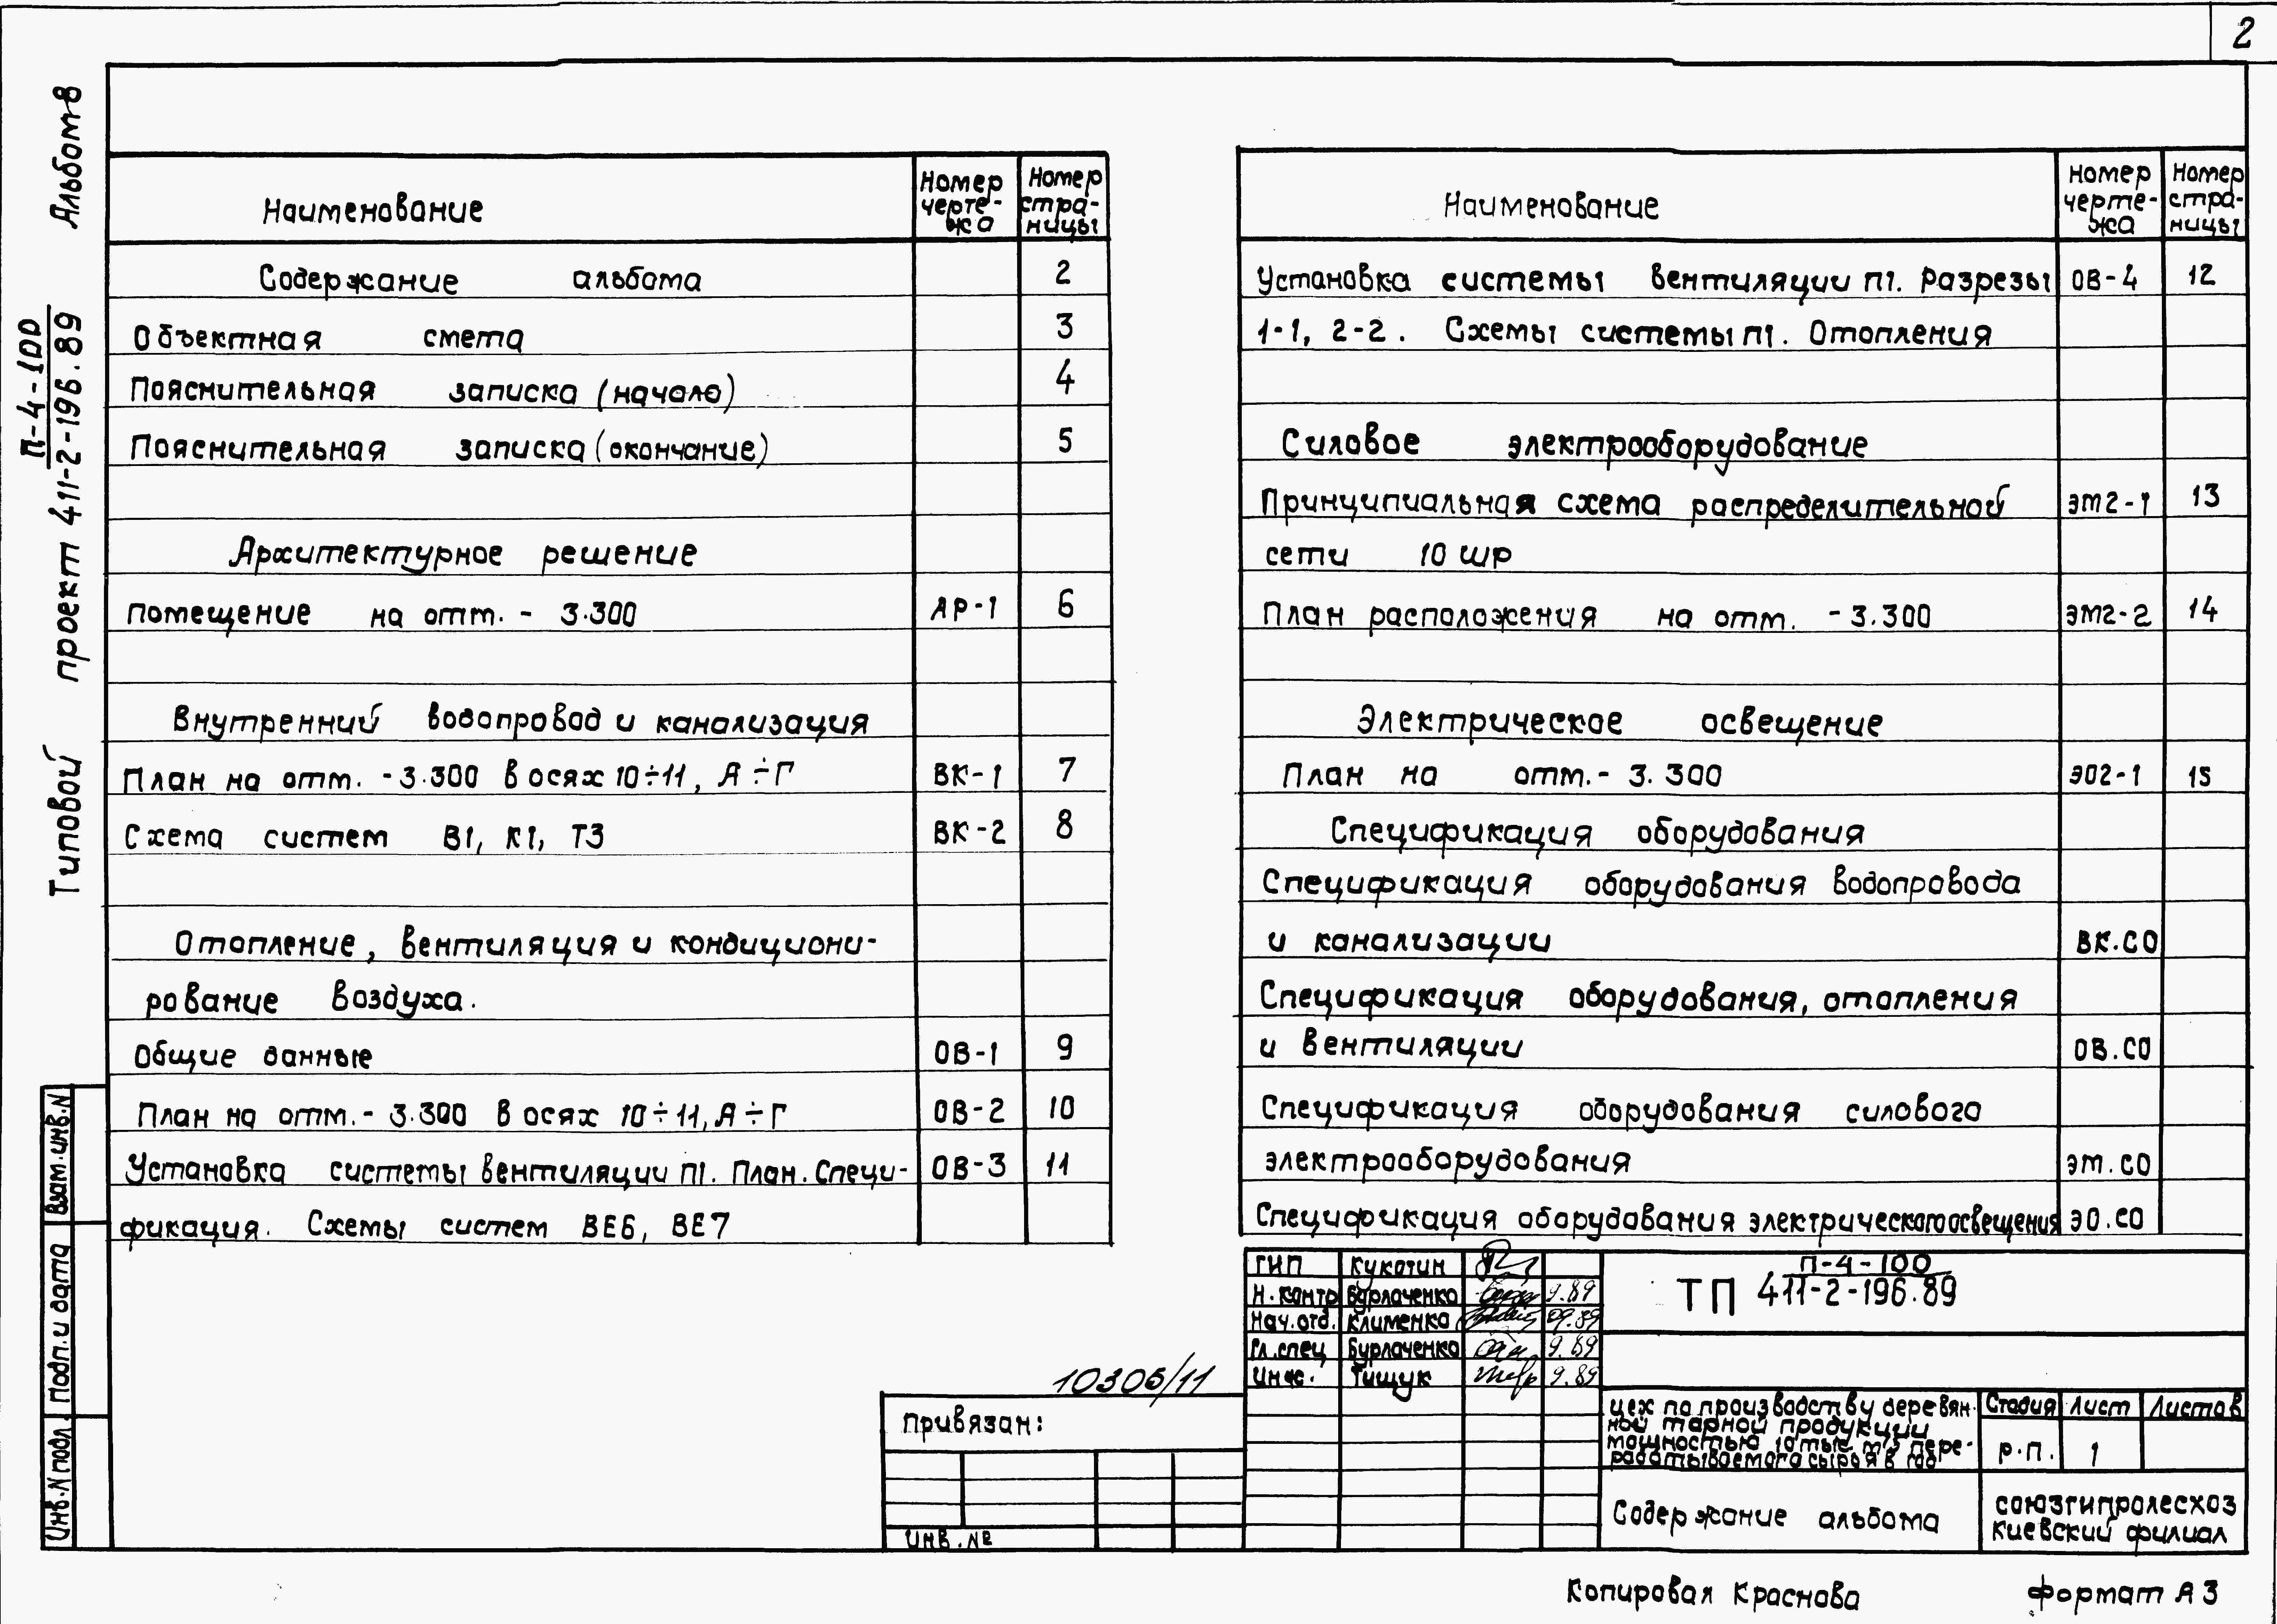 2
Альбом 8
Типовой проект П-4-100
411-2-196.89
Наименование
Номер черте-жа
Номер стра-ницы
Содержание альбома 2
Объектная смета 3
Пояснительная записка (начало) 4
Пояснительная записка (окончание) 5
Архитектурное решение
Помещение на отм. - 3.300 АР-1 6
Внутренний водопровод и канализация
План на отм. - 3.300 в осях 10÷11, А÷Г ВК-1 7
Схема систем В1, К1, Т3 ВК-2 8
Отопление, вентиляция и кондициони-
рование воздуха.
Общие данные ОВ-1 9
План на отм. - 3.300 в осях 10÷11, А÷Г ОВ-2 10
Установка системы вентиляции П1. План. Специ- ОВ-3 11
фикация. Схемы систем ВЕ6, ВЕ7
Наименование
Номер черте-жа
Номер стра-ницы
Установка системы вентиляции П1. Разрезы ОВ-4 12
1-1, 2-2. Схемы системы П1. Отопления
Силовое электрооборудование
Принципиальная схема распределительной ЭМ2-1 13
сети 10 ШР
План расположения на отм. - 3.300 ЭМ2-2 14
Электрическое освещение
План на отм. - 3.300 ЭО2-1 15
Спецификация оборудования
Спецификация оборудования водопровода
и канализации ВК.СО
Спецификация оборудования, отопления
и вентиляции ОВ.СО
Спецификация оборудования силового
электрооборудования ЭМ.СО
Спецификация оборудования электрического освещения ЭО.СО
Взам. инв. N
Подп. и дата
Инв. N подл.
10305/11
Привязан:
Инв. №
ГИП Кукотин
Н. контр Бурлаченко 9.89
Нач. отд. Клименко 09.89
Гл. спец Бурлаченко 9.89
Инж. Тищук 9.89
ТП П-4-100
411-2-196.89
цех по производству деревян-
ной тарной продукции
мощностью 10 тыс. м³ пере-
рабатываемого сырья в год
Стадия Лист Листов
Р.П. 1
Содержание альбома
Союзгипролесхоз
Киевский филиал
Копировал Краснова
Формат А3